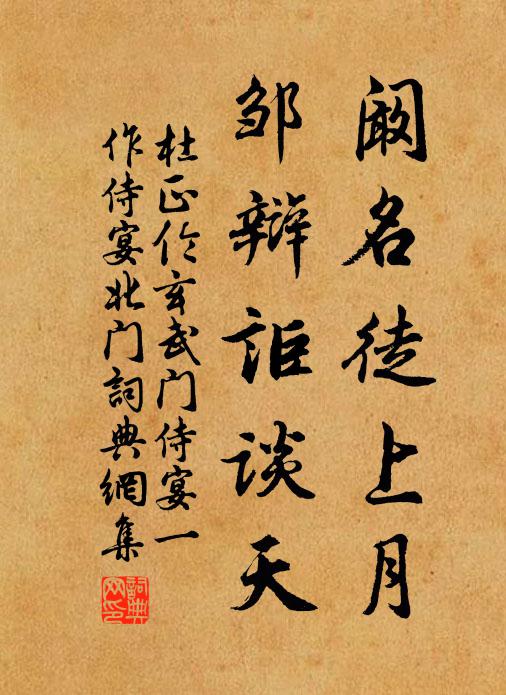 阚名徒上月
邹辩讵谈天
杜正伦玄武门侍宴一
作侍宴北门詞典網集
詞典網印